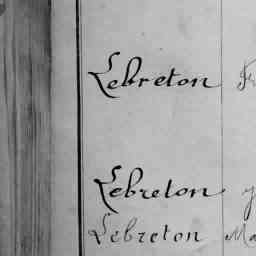 Lebreton
Lebreton
Lebreton Ma